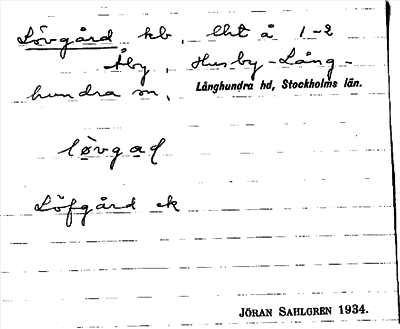 Lövgård kb, lht å 1-2
Åby, Husby-Lång-
hundra sn,
Långhundra hd, Stockholms län.
løvgaḍ
Löfgård ek
JÖRAN SAHLGREN 1934.